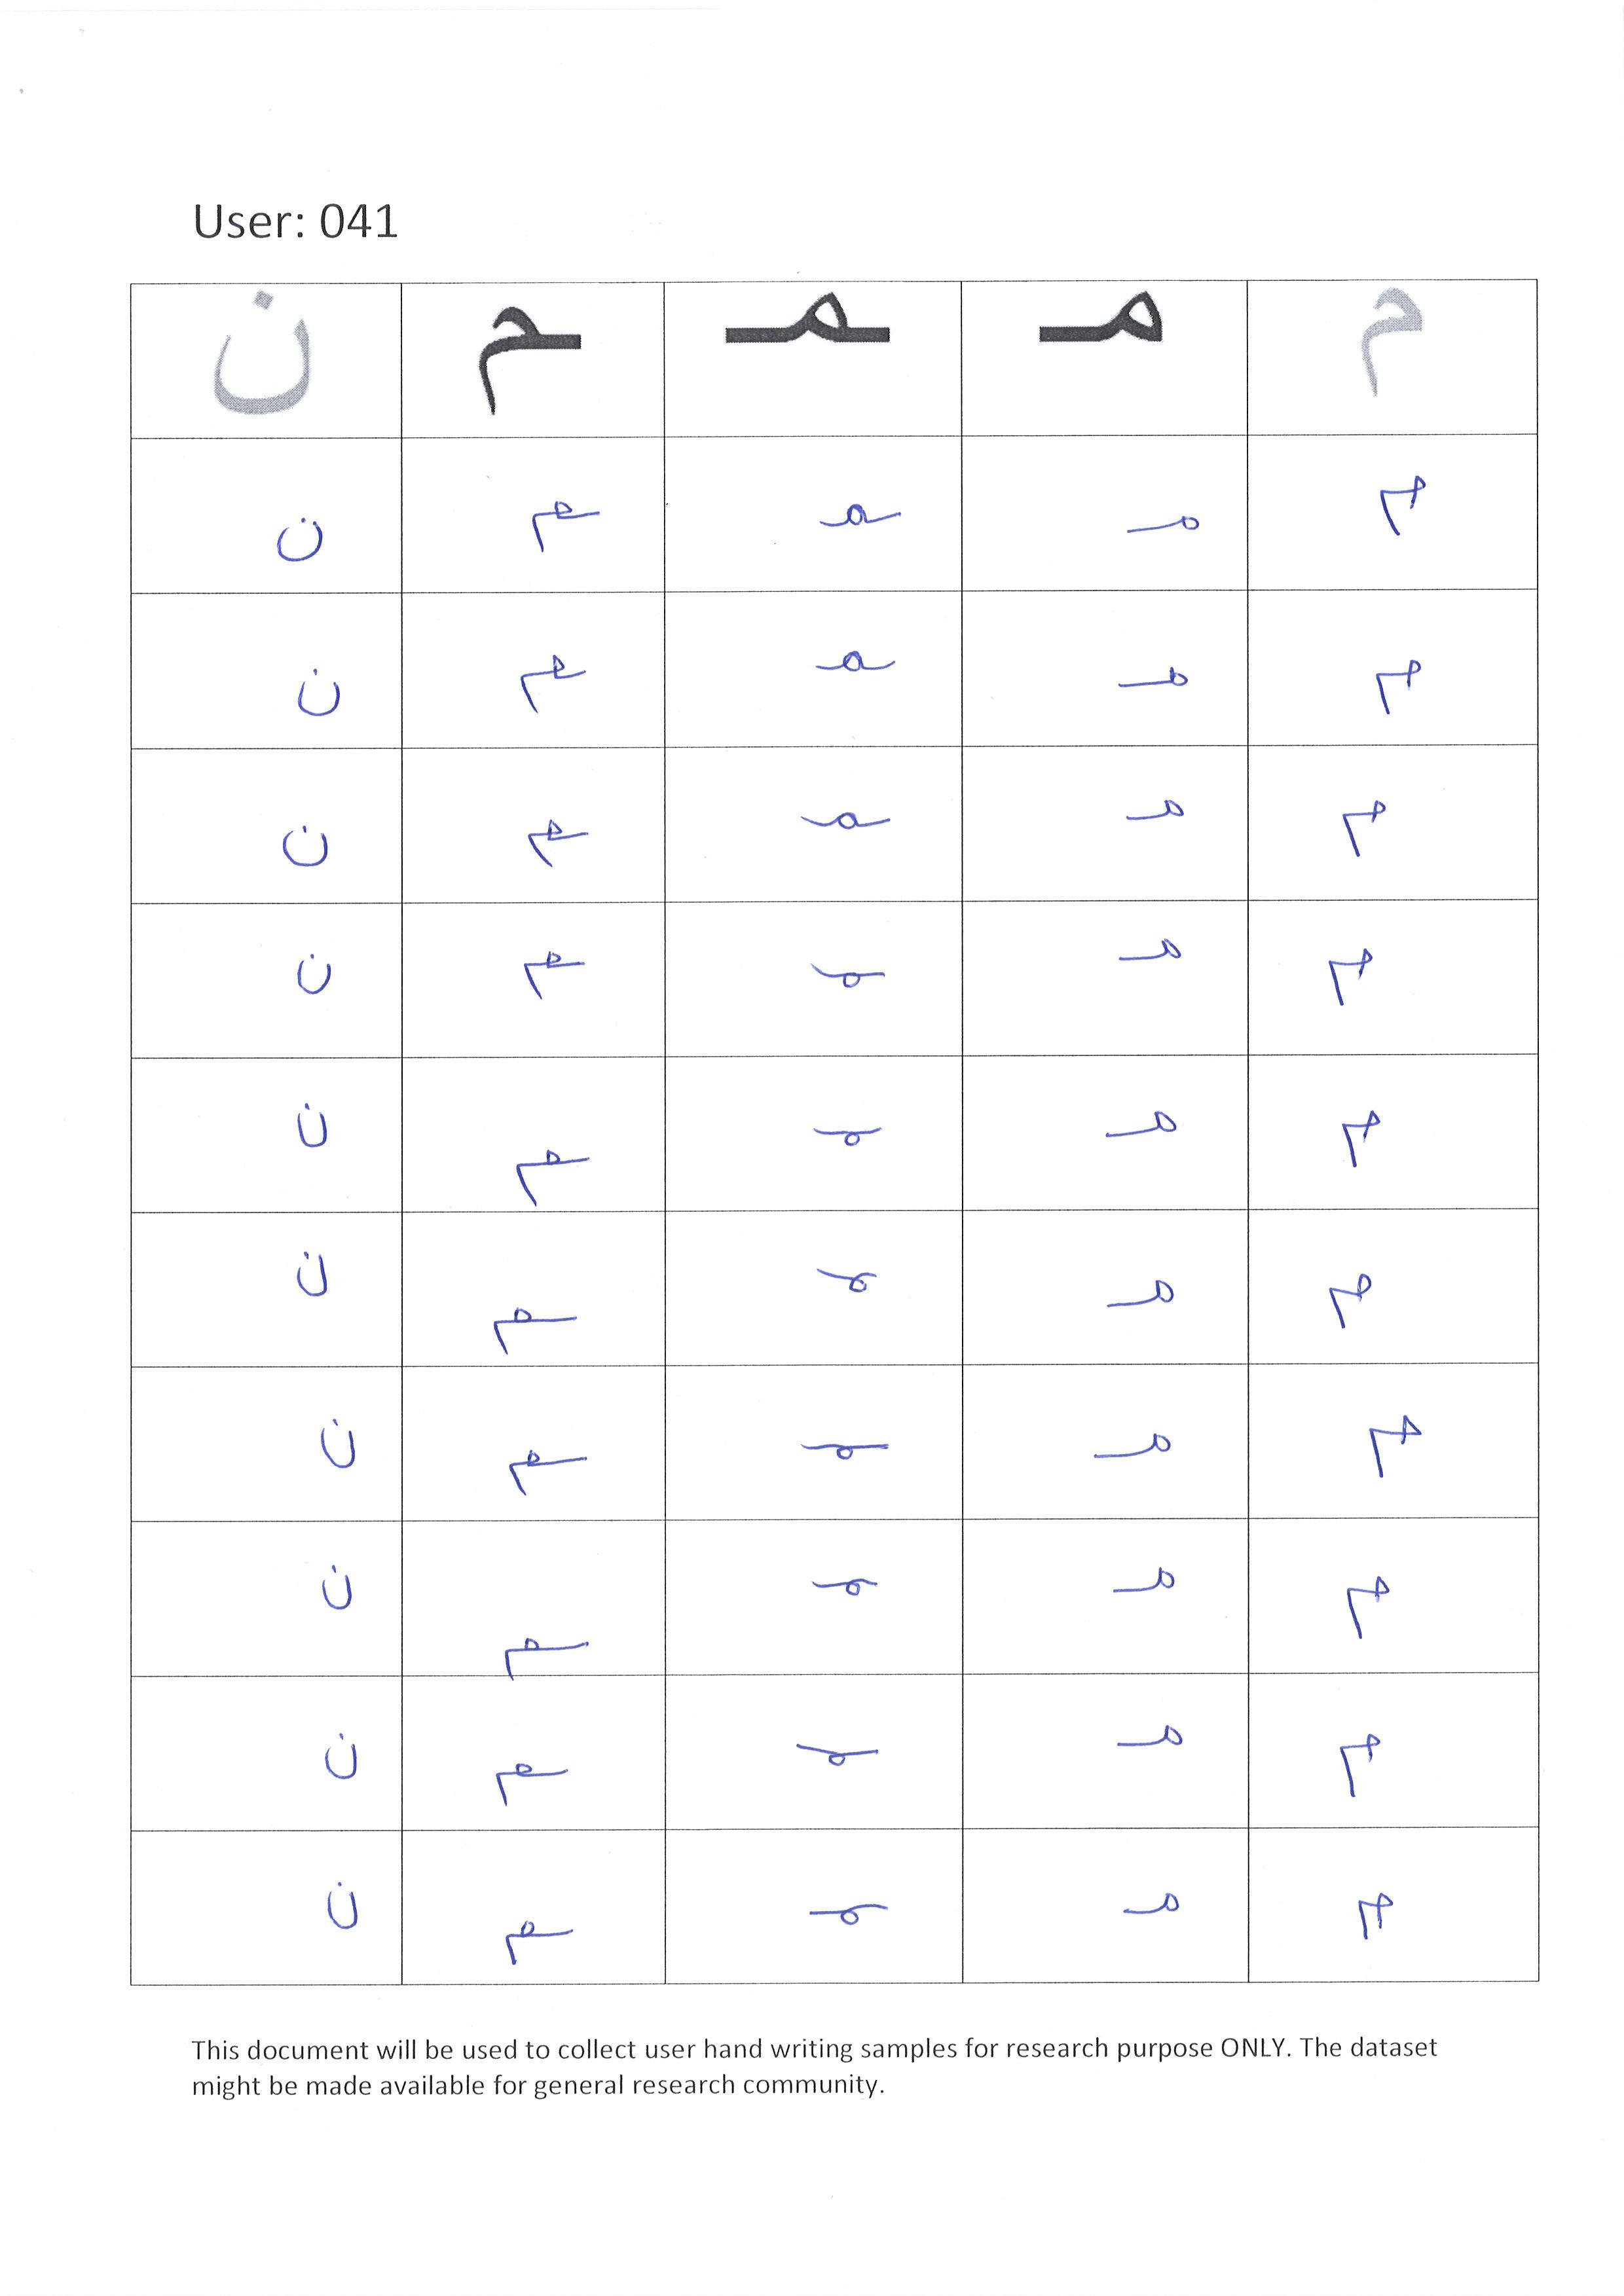 User: 041
م مـ ـمـ ـم ن
م مـ ـمـ ـم ن
م مـ ـمـ ـم ن
م مـ ـمـ ـم ن
م مـ ـمـ ـم ن
م مـ ـمـ ـم ن
م مـ ـمـ ـم ن
م مـ ـمـ ـم ن
م مـ ـمـ ـم ن
م مـ ـمـ ـم ن
م مـ ـمـ ـم ن
This document will be used to collect user hand writing samples for research purpose ONLY. The dataset
might be made available for general research community.